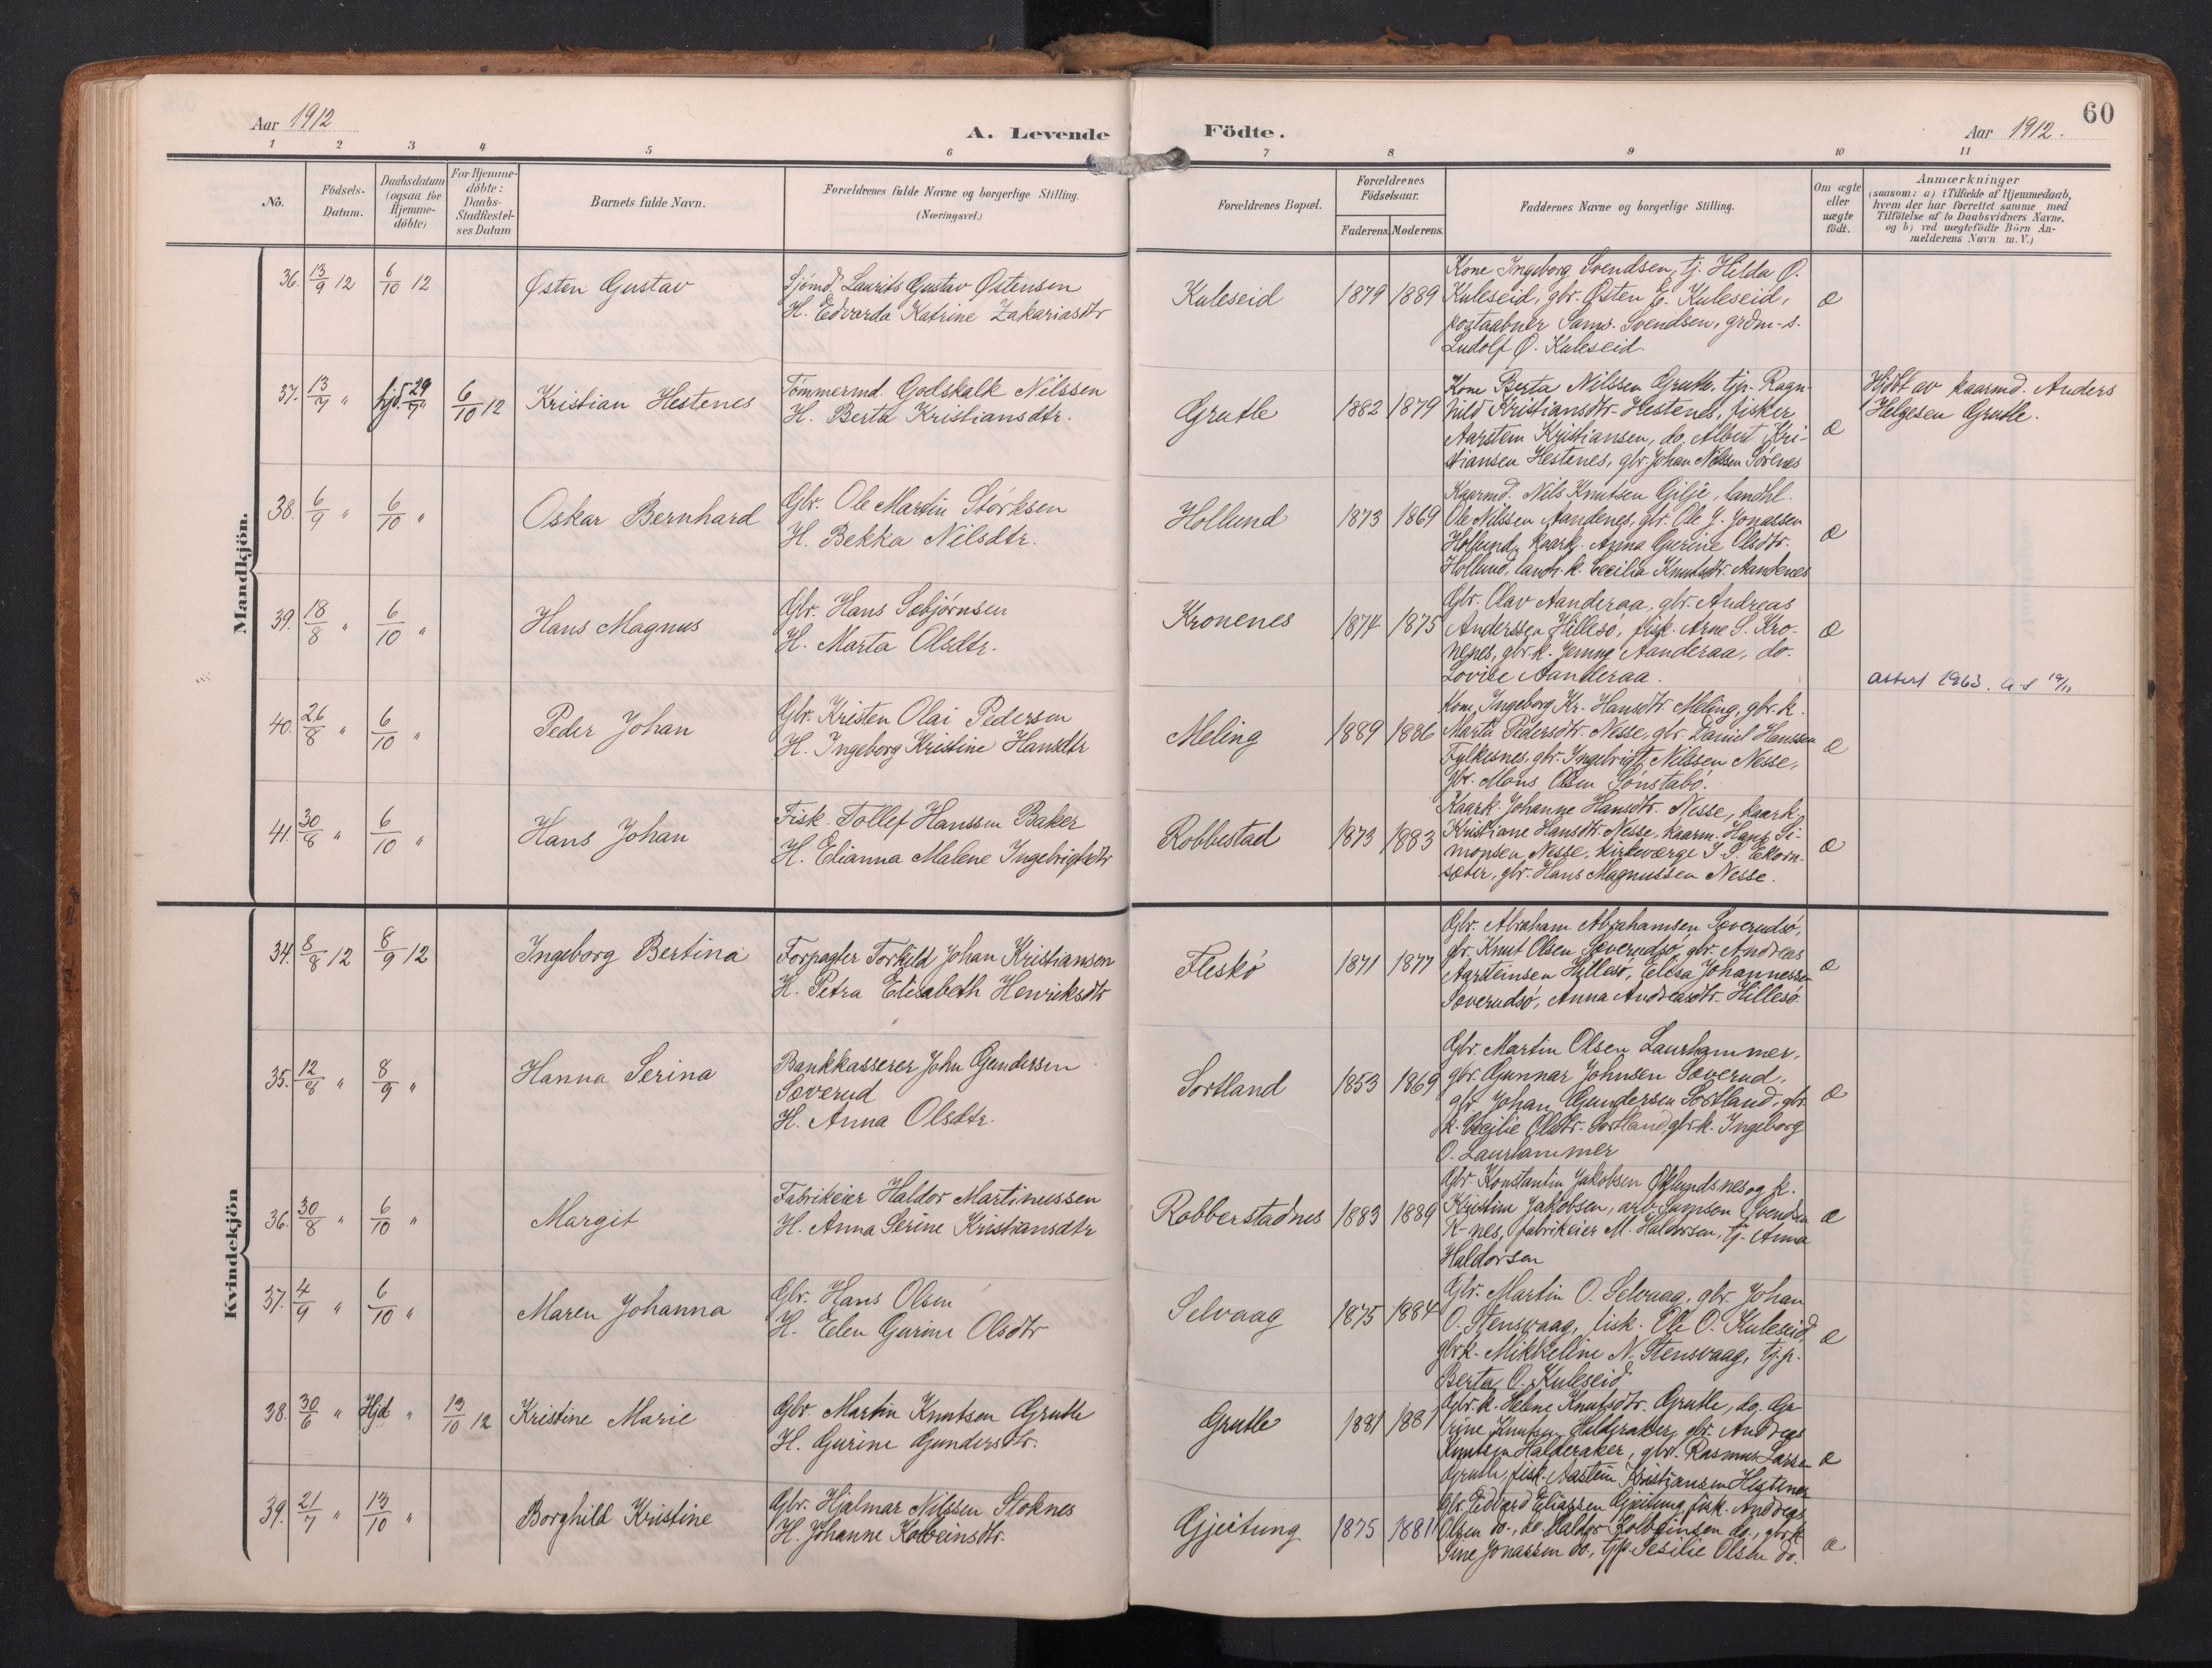 Aar 1912
A. Levende
Födte.
Aar 1912.
60
1 2 3 4 5 6 7 8 9 10 11
No.
Födsels-
Datum.
Daabsdatum
(ogsaa for
Hjemme-
döbte)
For Hjemme-
döbte:
Daabs-
Stadfæstel-
ses Datum
Barnets fulde Navn.
Forældrenes fulde Navne og borgerlige Stilling.
(Næringsvei.)
Forældrenes Bopæl.
Forældrenes
Födselsaar.
Faderens. Moderens.
Faddernes Navne og borgerlige Stilling.
Om ægte
eller
uægte
födt.
Anmærkninger
(saasom: a) i Tilfælde af Hjemmedaab,
hvem der har forrettet samme med
Tilföielse af to Daabsvidners Navne.
og b) ved uægtefödte Börn An-
melderens Navn m. V.)
Mandkjön.
36. 13/9 12 6/10 12 Østen Gustav
Sjömd. Laurits Gustav Østensen
H. Edvarda Katrine Zakariasdtr
Kuleseid 1879 1889
Kone Ingeborg Svendsen, tj. Hilda Ø.
Kuleseid, gbr. Østen E. Kuleseid,
postaabner Sams. Svendsen, grdm-s.
Ludolf Ø. Kuleseid.
æ
37. 13/7 " hjd. 29/7 " 6/10 12 Kristian Hestenes
Tömmermd. Godskalk Nilssen
H. Berta Kristiansdtr.
Grutle 1882 1879
Kone Berta Nilssen Grutle, tjp. Ragn-
hild Kristiansdtr. Hestenes, fisker
Aarstein Kristiansen, do. Albert Kri-
stiansen Hestenes, gbr. Johan Nilssen Sörenes
æ
Hjdbt av kaarmd. Anders
Helgesen Grutle.
38. 6/9 " 6/10 " Oskar Bernhard
Gbr. Ole Martin Störksen
H. Bekka Nilsdtr.
Hollund 1873 1869
Kaarmd. Nils Knutsen Gilje, landhl.
Ole Nilssen Aandenes, gbr. Ole J. Jonassen
Hollund, kaark. Anna Gurine Olsdtr.
Hollund, landh. k. Cecilia Knutsdtr. Aandenes
æ
39. 18/8 " 6/10 " Hans Magnus
Gbr. Hans Sebjørnsen
H. Marta Olsdtr.
Kronenes 1874 1875
Gbr. Olav Aanderaa, gbr. Andreas
Anderssen Hillesö, fisk. Arne S. Kro-
nenes, gbr. k. Jenny Aanderaa, do.
Lovise Aanderaa.
æ
attest 1963.
40. 26/8 " 6/10 " Peder Johan
Gbr. Kristen Olai Pedersen
H. Ingeborg Kristine Hansdtr
Meling 1889 1886
Kone Ingeborg Kr. Hansdtr. Meling, gbr. k.
Marta Pedersdtr. Nesse, gbr. Daniel Hanssen
Fylkesnes, gbr. Ingebrigt Nilssen Nesse,
gbr. Mons Olsen Sönstabö.
æ
41. 30/8 " 6/10 " Hans Johan
Fisk. Tollef Hanssen Baker
H. Elianna Malene Ingebrigtsdtr
Robbestad 1873 1883
Kaark. Johanne Hansdtr. Nesse, kaark.
Kristiane Hansdtr. Nesse, kaarm. Hans Si-
monsen Nesse, kirkeværge S. S. Ekorn-
sæter, gbr. Hans Magnussen Nesse.
æ
Kvindekjön
34. 8/8 12 8/9 12 Ingeborg Bertina
Forpagter Torkild Johan Kristiansen
H. Petra Elisabeth Henriksdtr
Fleskö 1871 1877
Gbr. Abraham Abrahamsen Sæverudsö,
gbr. Knut Olsen Sæverudsö, gbr. Andreas
Aarsteinsen Hillesö, Elisa Johannessen
Sæverudsö, Anna Andreasdtr. Hillesö.
æ
35. 12/8 " 8/9 " Hanna Serina
Bankkasserer John Gundersen
Sæverud
H. Anna Olsdtr.
Sortland 1853 1869
Gbr. Martin Olsen Laurhammer,
gbr. Gunnar Johnsen Sæverud,
gbr. Johan Gundersen Sortland, gbr.
k. Cecilie Olsdtr. Sortland, gbr. k. Ingeborg
O. Laurhammer
æ
36. 30/8 " 6/10 " Margit
Fabrikeier Haldor Martinussen
H. Anna Serine Kristiansdtr
Robberstadnes 1883 1889
Gbr. Konstantin Jakobsen Øklundsnes og k.
Kristine Jakobsen, arb. Samson Svendsen
R-nes, fabrikeier M. Haldorsen, tj. Anna
Haldorsen
æ
37. 4/9 " 6/10 " Maren Johanna
Gbr. Hans Olsen
H. Elen Gurine Olsdtr
Selvaag 1875 1884
Gbr. Martin O. Selvaag, gbr. Johan
O. Stensvaag, fisk. Ole O. Kuleseid,
gbr. k. Mikkeline N. Stensvaag, tj.p.
Berta O. Kuleseid
æ
38. 30/6 " Hjd " 13/10 12 Kristine Marie
Gbr. Martin Knutsen Grutle
H. Gurine Gundersdtr.
Grutle 1881 1881
Gbr. k. Helene Knutsdtr. Grutle, do. Gu-
rine Knutsen Halderaker, gbr. Andreas
Knutsen Halderaker, gbr. Rasmus Larsen
Grutle, fisk. Aastein Kristiansen Hestenes
æ
39. 21/7 " 13/10 " Borghild Kristine
Gbr. Hjalmar Nilssen Stoknes
H. Johanne Kolbeinsdtr.
Gjeitung 1875 1881
Gbr. Edvard Eliassen Gjeitung, fisk. Andreas
Olsen do., do. Haldor Kolbeinsen do., gbr. k
Sine Jonassen do., tjp. Sesilie Olsen do.
æ